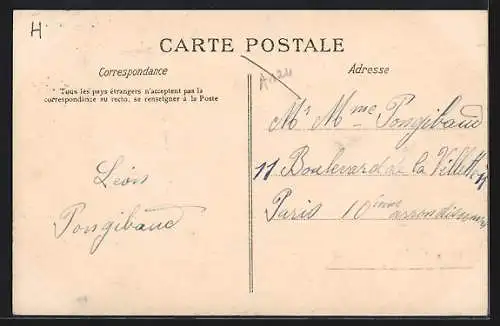 H
CARTE POSTALE
Correspondance
Tous les pays étrangers n'acceptent pas la
correspondance au recto, se renseigner à la Poste
Léon
Pongibaud
Adresse
Mr Mme Pongibaud
11 Boulevard de la Villette
Paris 10ième arrondissement